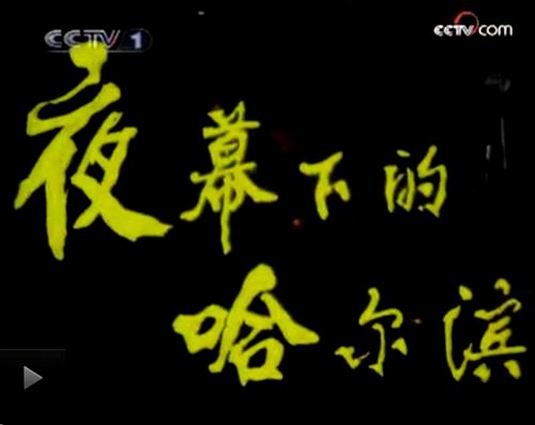 CCTV 1
CCTV.com
夜幕下的
哈尔滨